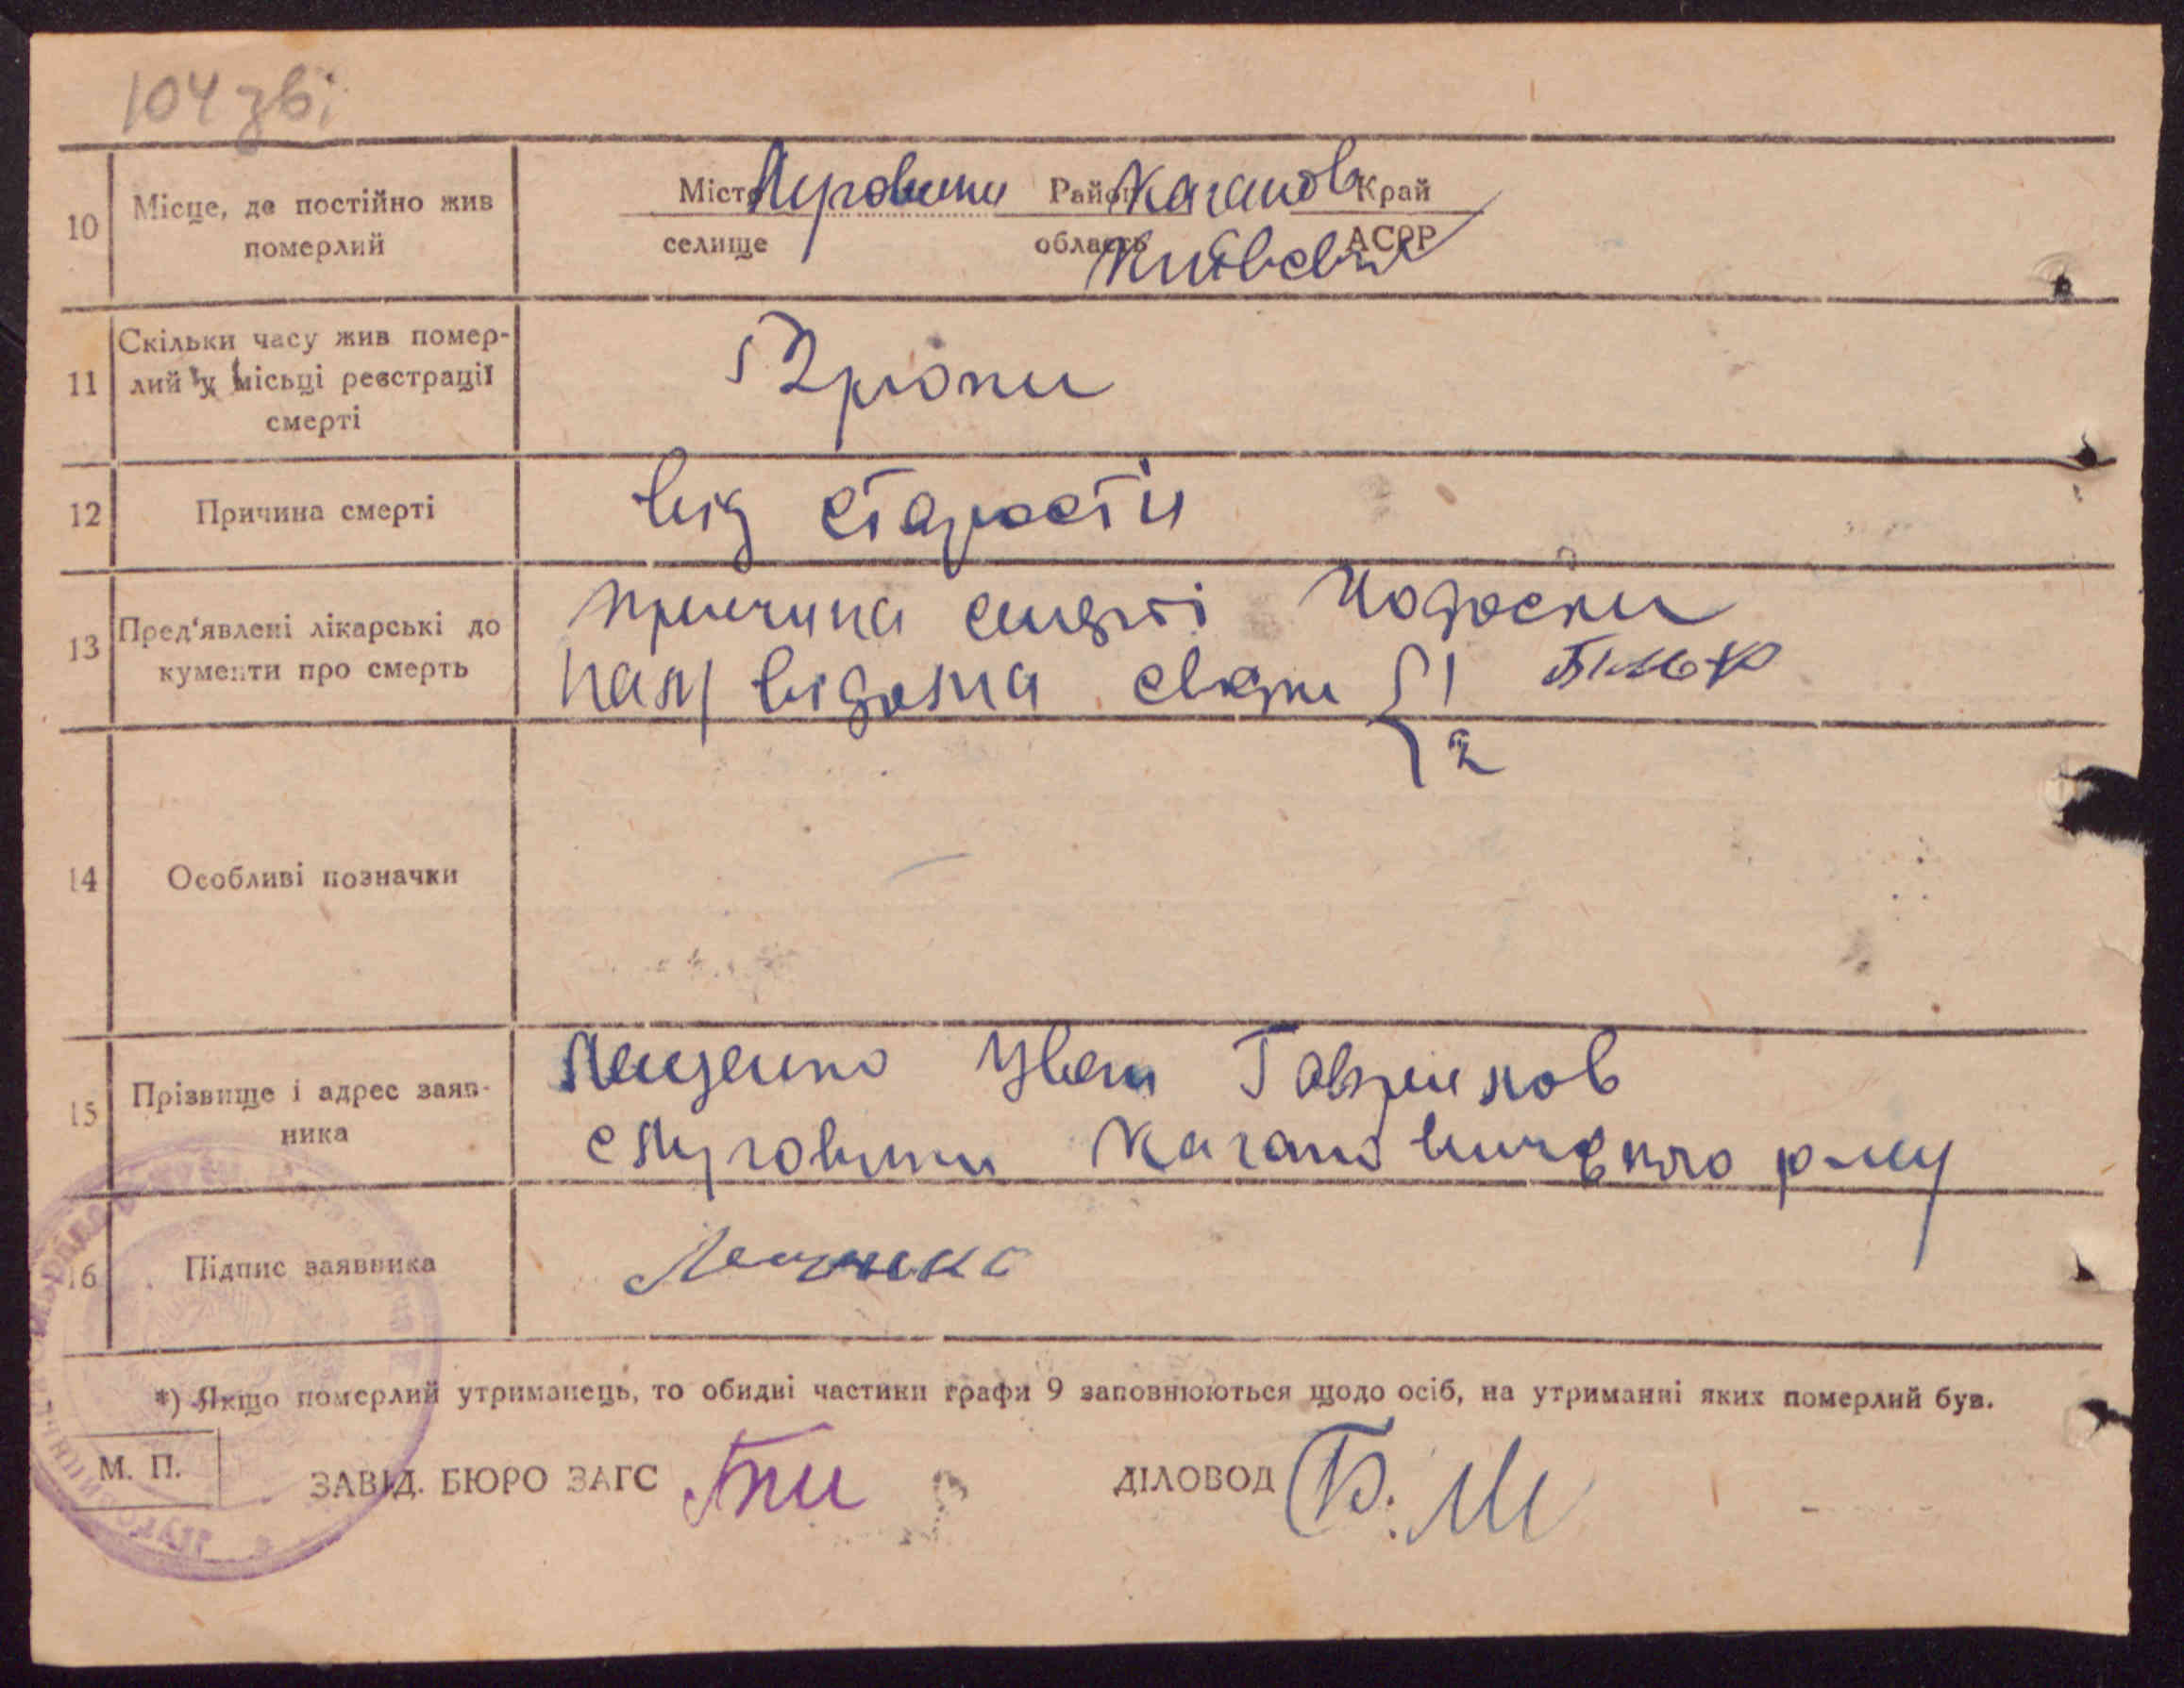 104 зві
10 Місце, де постійно жив померлий
Місто Луговики Район Каганов Край
селище область Київська АСРР
11 Скільки часу жив помер-
лий у місьці реєстрації
смерті
52 роки
12 Причина смерті
від старости
13 Пред'явлені лікарські до
кументи про смерть
причина смерті
нам відома свідки 1
2
14 Особливі позначки
15 Прізвище і адрес заяв-
ника
Лещенко Іван Гаврилов
с Луговики Кагановичского р-ну
16 Підпис заявника
Лещенко
*) Якщо померлий утриманець, то обидві частини графи 9 заповнюються щодо осіб, на утриманні яких померлий був.
М. П.
ЗАВІД. БЮРО ЗАГС
ДІЛОВОД